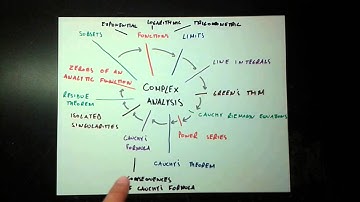 EXPONENTIAL
LOGARITHMIC
TRIGONOMETRIC
SUBSETS
FUNCTIONS
LIMITS
LINE INTEGRALS
GREEN'S THM
CAUCHY RIEMANN EQUATIONS
POWER SERIES
CAUCHY'S THEOREM
CAUCHY'S
FORMULA
CONSEQUENCES
OF CAUCHY'S FORMULA
ISOLATED
SINGULARITIES
RESIDUE
THEOREM
ZEROES OF AN
ANALYTIC FUNCTION
COMPLEX
ANALYSIS